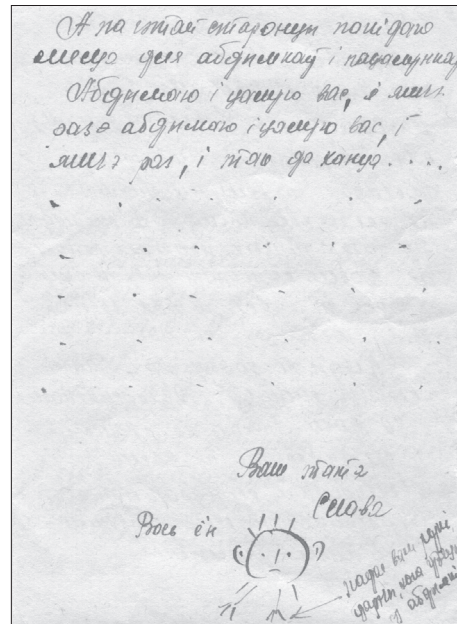 А на гэтай старонцы пакідаю
месца для абдымкаў і пацалункаў
Абдымаю і цалую вас, і яшчэ
раз абдымаю і цалую вас, і
яшчэ раз, і так да канца....
Ваш тата
Слава
Вось ён